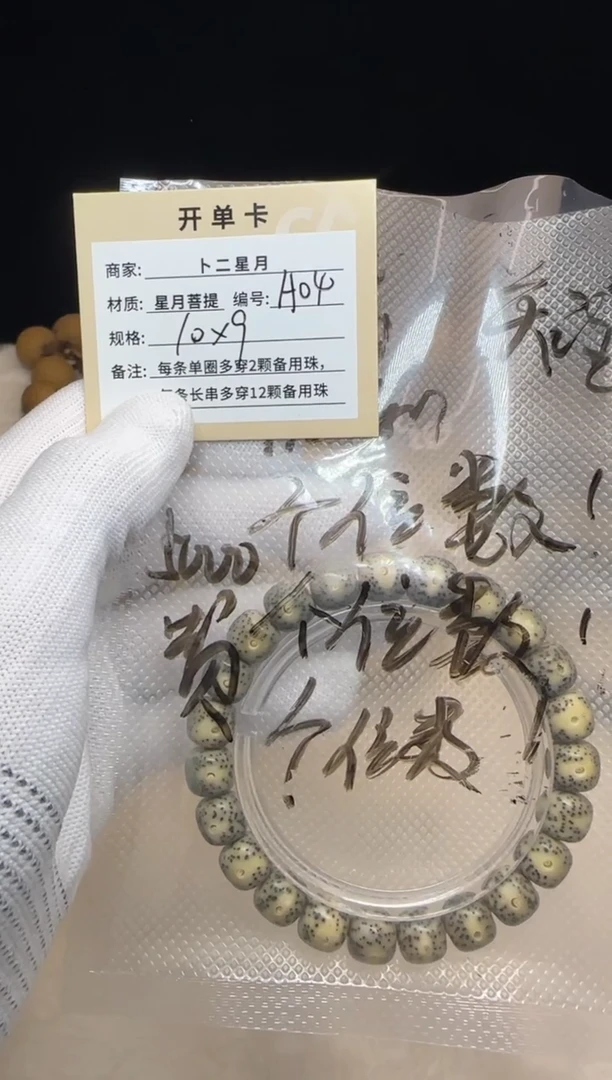 开单卡
商家: 卜二星月
材质: 星月菩提 编号: A04
规格: 10x9
备注: 每条单圈多穿2颗备用珠,
每条长串多穿12颗备用珠
个位数!
个位数!
个位数